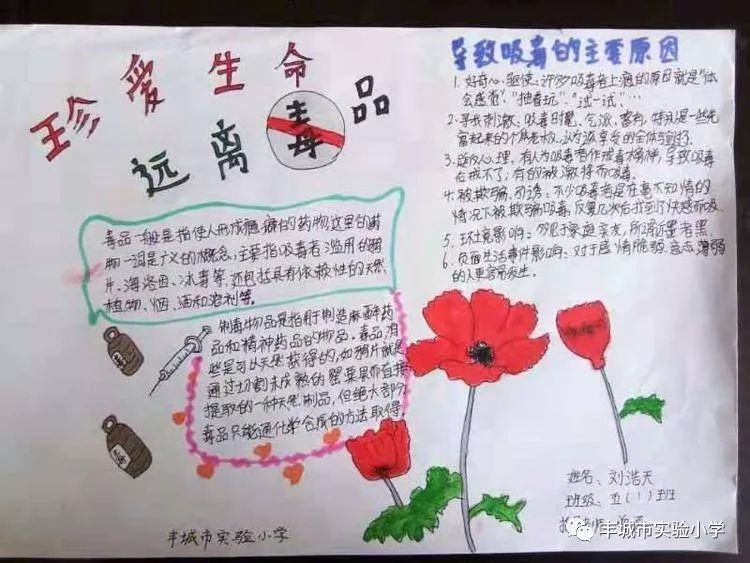 珍爱生命
远离毒品
毒品一般是指使人形成瘾癖的药物这里的药
物一词是广义的概念,主要指吸毒者滥用的鸦
片、海洛因、冰毒等,还包括具有依赖性的天然
植物、烟、酒和溶剂等。
制毒物品是指用于制造麻醉药
品和精神药品的物品。毒品有
些是可以天然获得的,如鸦片就是
通过切割未成熟的罂粟果而直接
提取的一种天然制品,但绝大部分
毒品只能通化学合成的方法取得
丰城市实验小学
导致吸毒的主要原因
1. 好奇心驱使:许多吸毒者上瘾的原因就是"什
么感觉"、"抽着玩"、"试一试"…
2. 寻求刺激、吸毒时髦、气派、富有,特别是一些先
富起来的个体老板,认为该享受的全体会到了。
3. 逆反心理,有人为吸毒者作戒毒榜样,导致吸毒
在戒不了;有的被激将而吸。
4. 被欺骗、引诱,不少吸毒者是在毫不知情的
情况下被欺骗吸毒,反复几次后找到了快感而吸。
5. 环境影响:多限于家庭亲友,所谓近墨者黑
6. 负面生活事件影响:对于感情脆弱、意志薄弱
的人更容易发生。
姓名、刘浩天
班级、五(1)班
丰城市实验小学